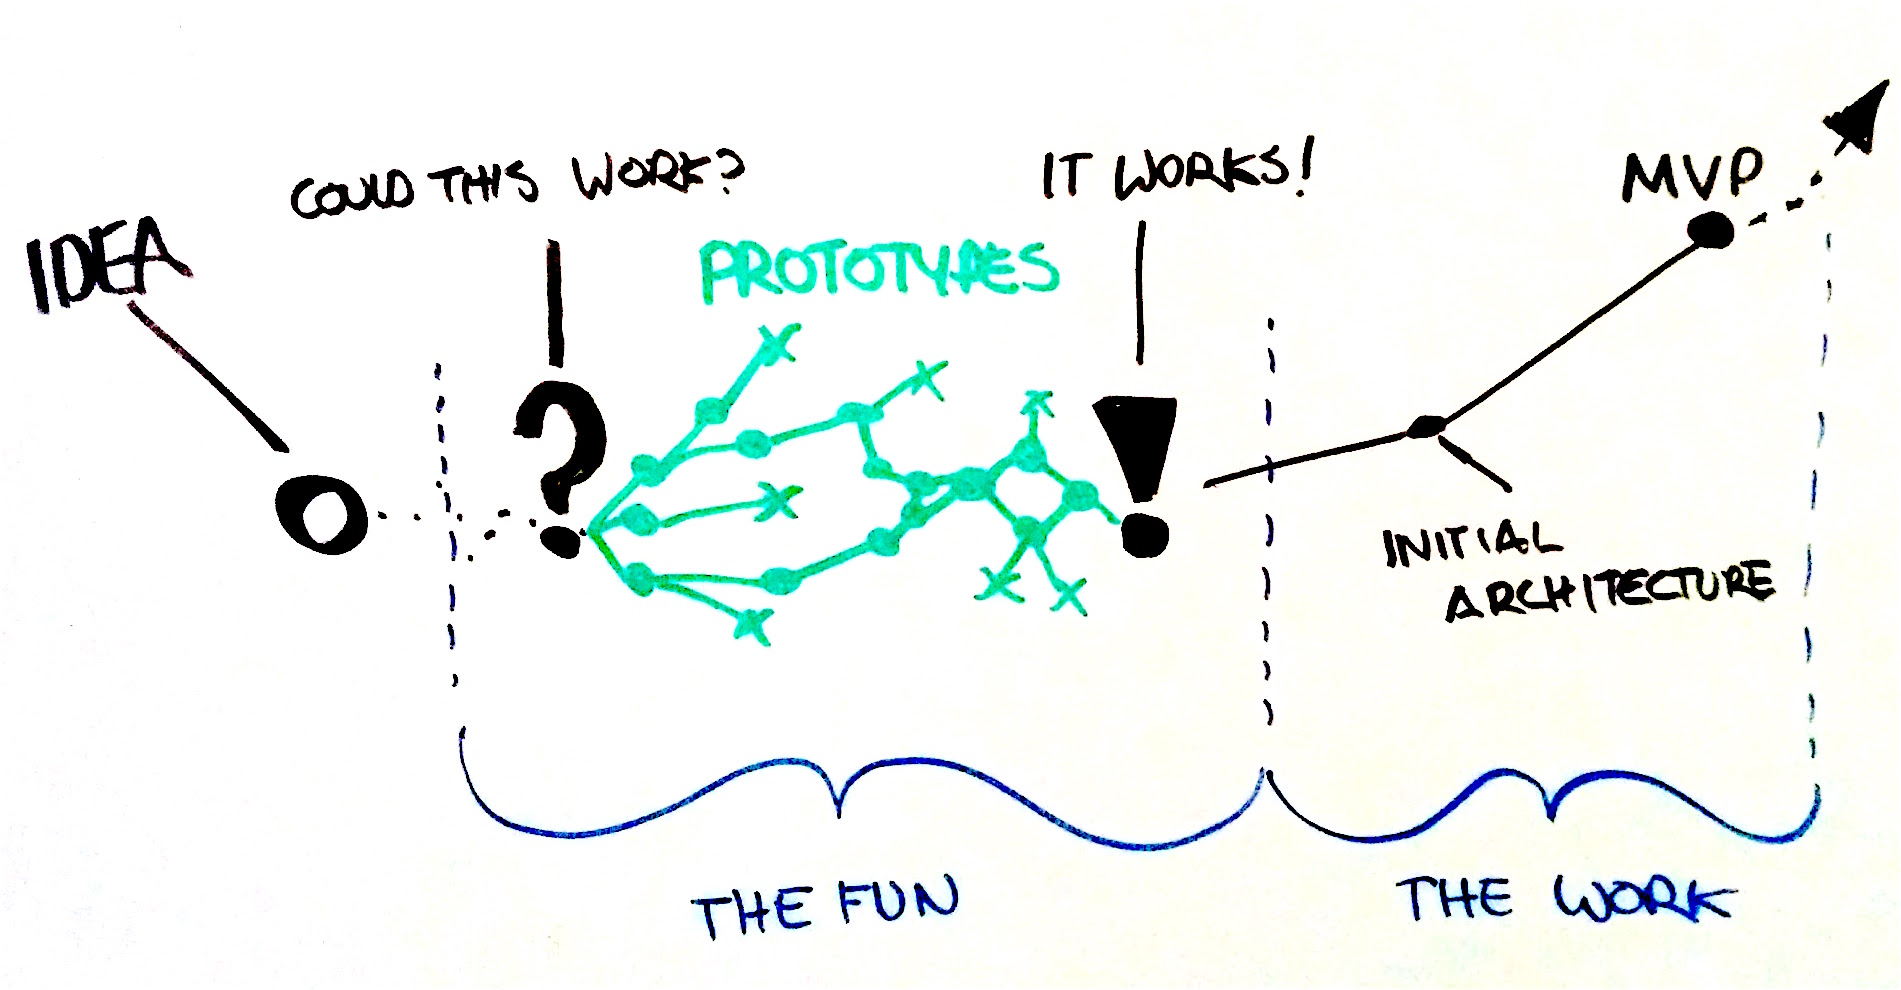 IDEA
COULD THIS WORK?
PROTOTYPES
IT WORKS!
MVP
INITIAL
ARCHITECTURE
THE FUN
THE WORK